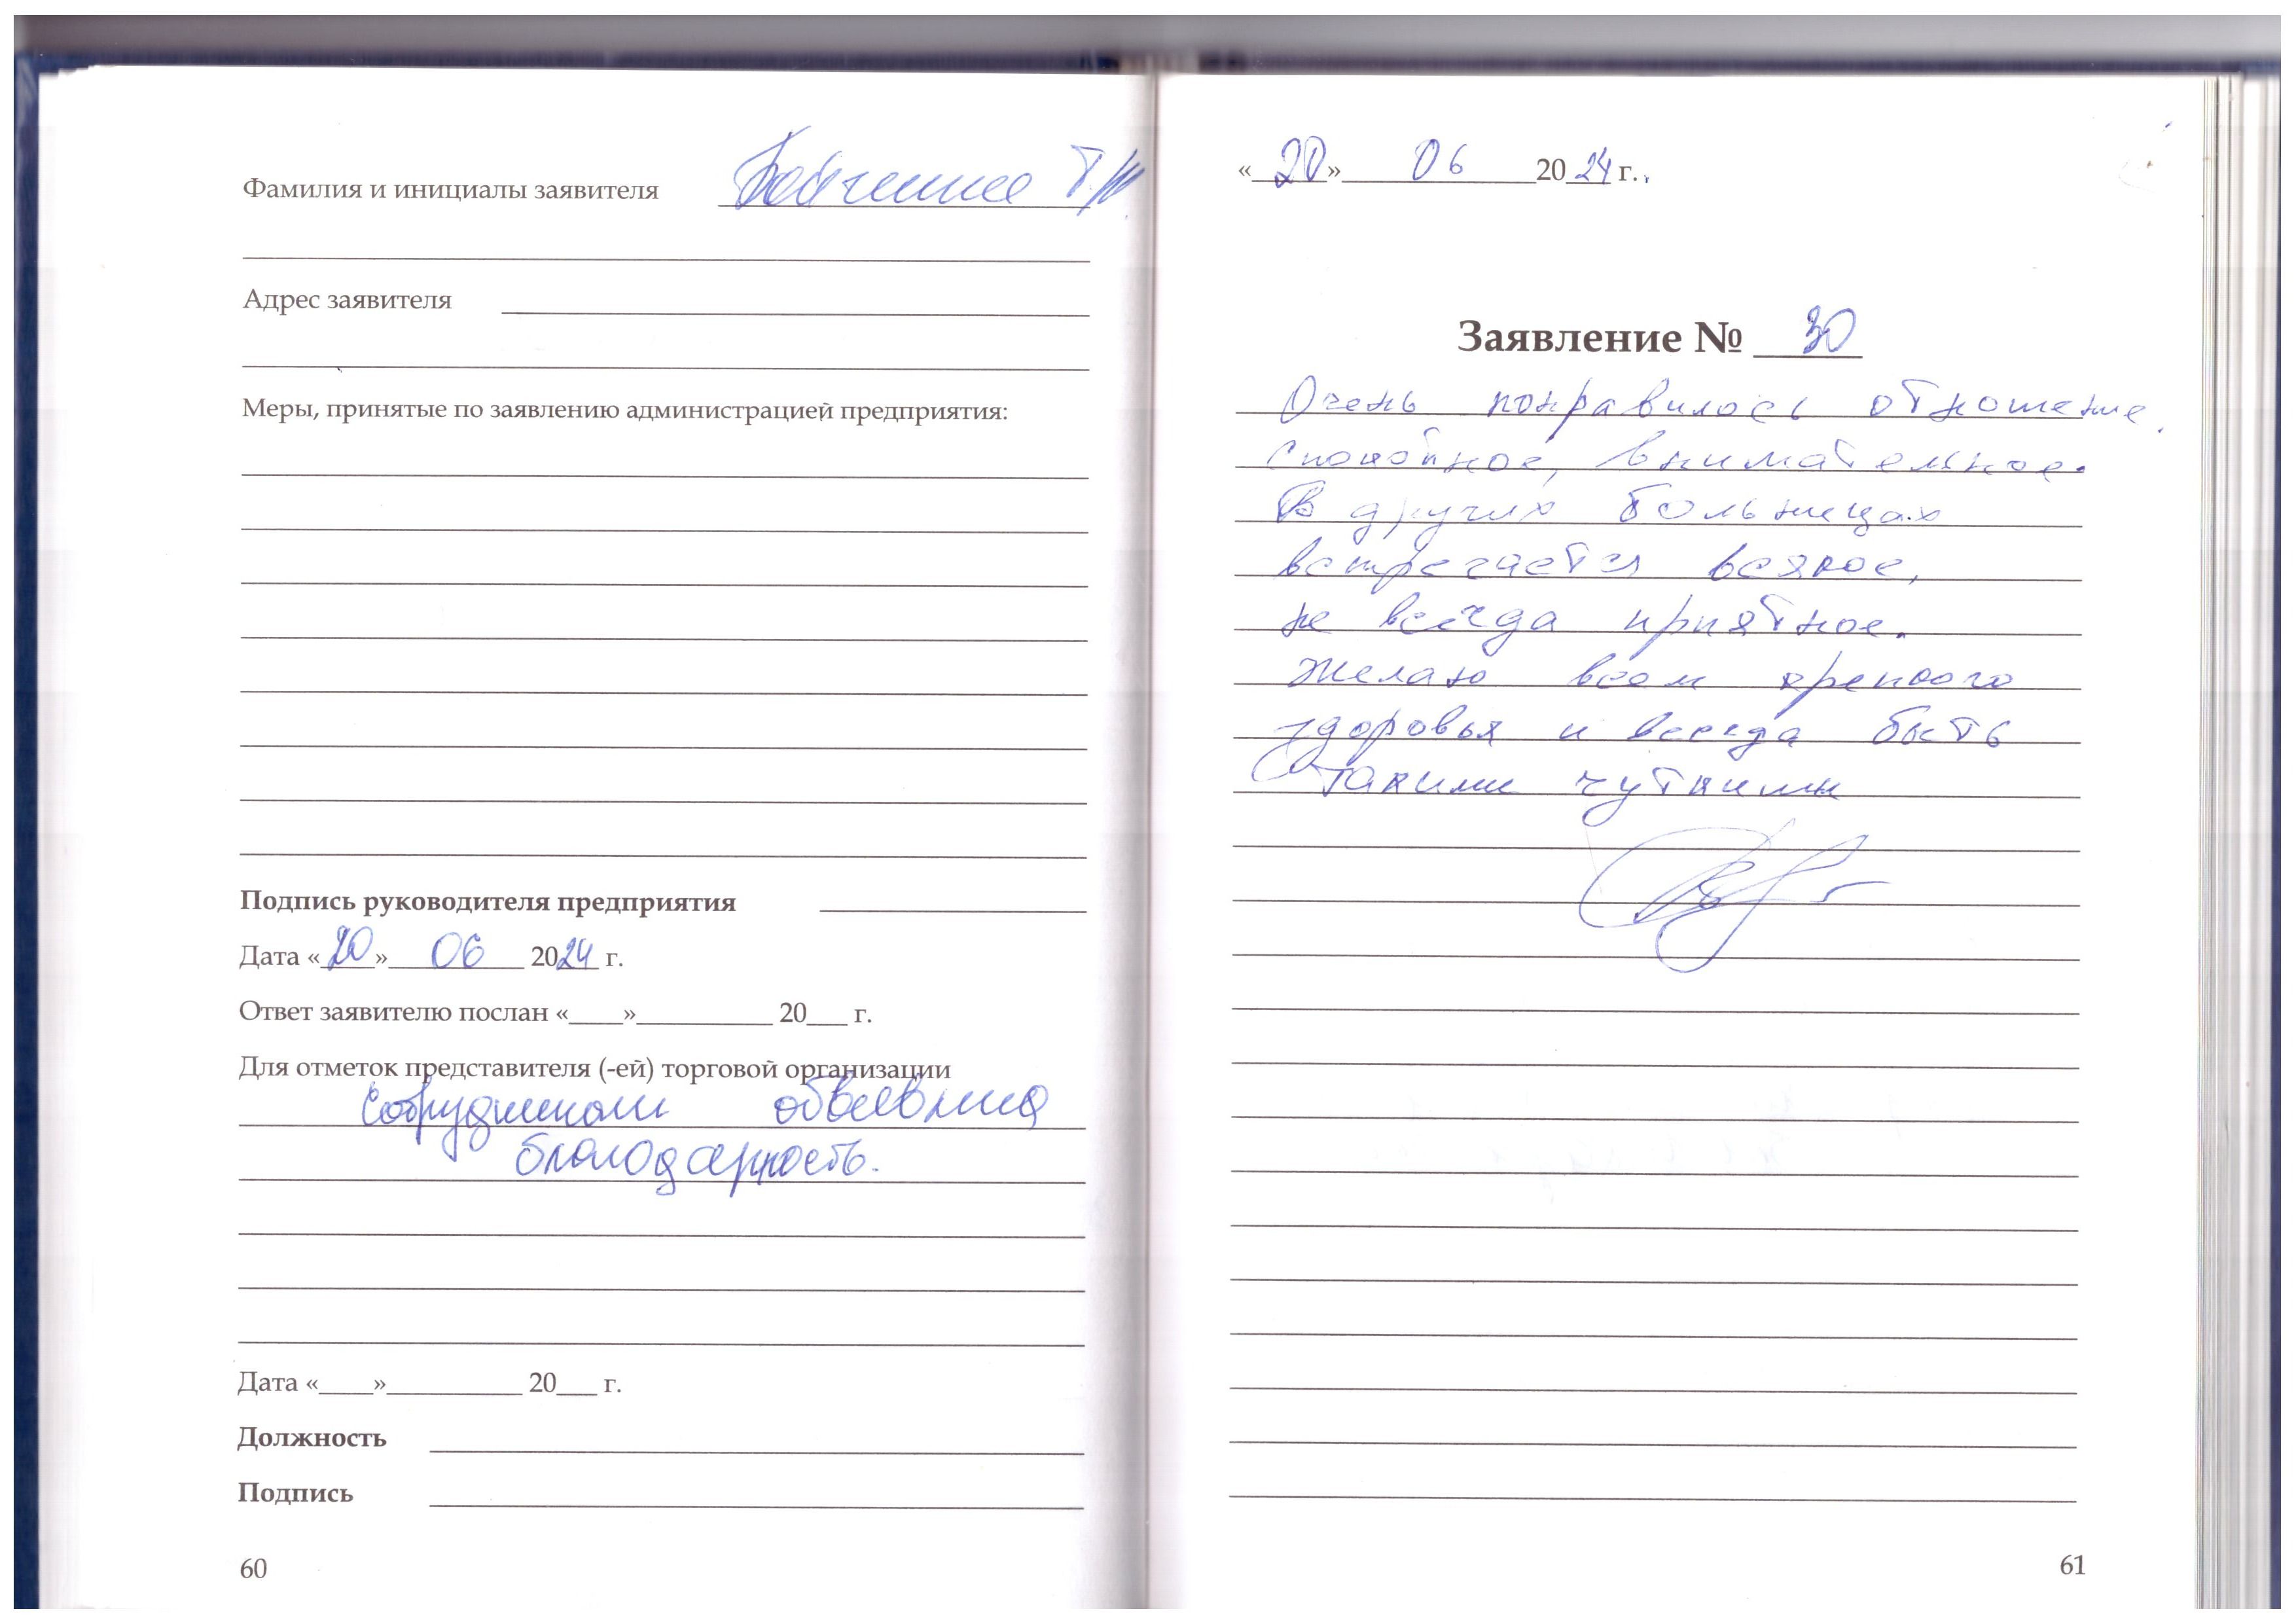 Фамилия и инициалы заявителя
Адрес заявителя
Меры, принятые по заявлению администрацией предприятия:
Подпись руководителя предприятия
Дата «20» 06 2024 г.
Ответ заявителю послан «____»__________ 20___ г.
Для отметок представителя (-ей) торговой организации
Сотрудникам объявлена
благодарность.
Дата «____»__________ 20___ г.
Должность
Подпись
60
«20» 06 2024 г.
Заявление № 30
Очень понравилось отношение.
Спокойное, внимательное.
В других больницах
встречается всякое,
не всегда приятное.
Желаю всем крепкого
здоровья и всегда быть
такими чуткими
61